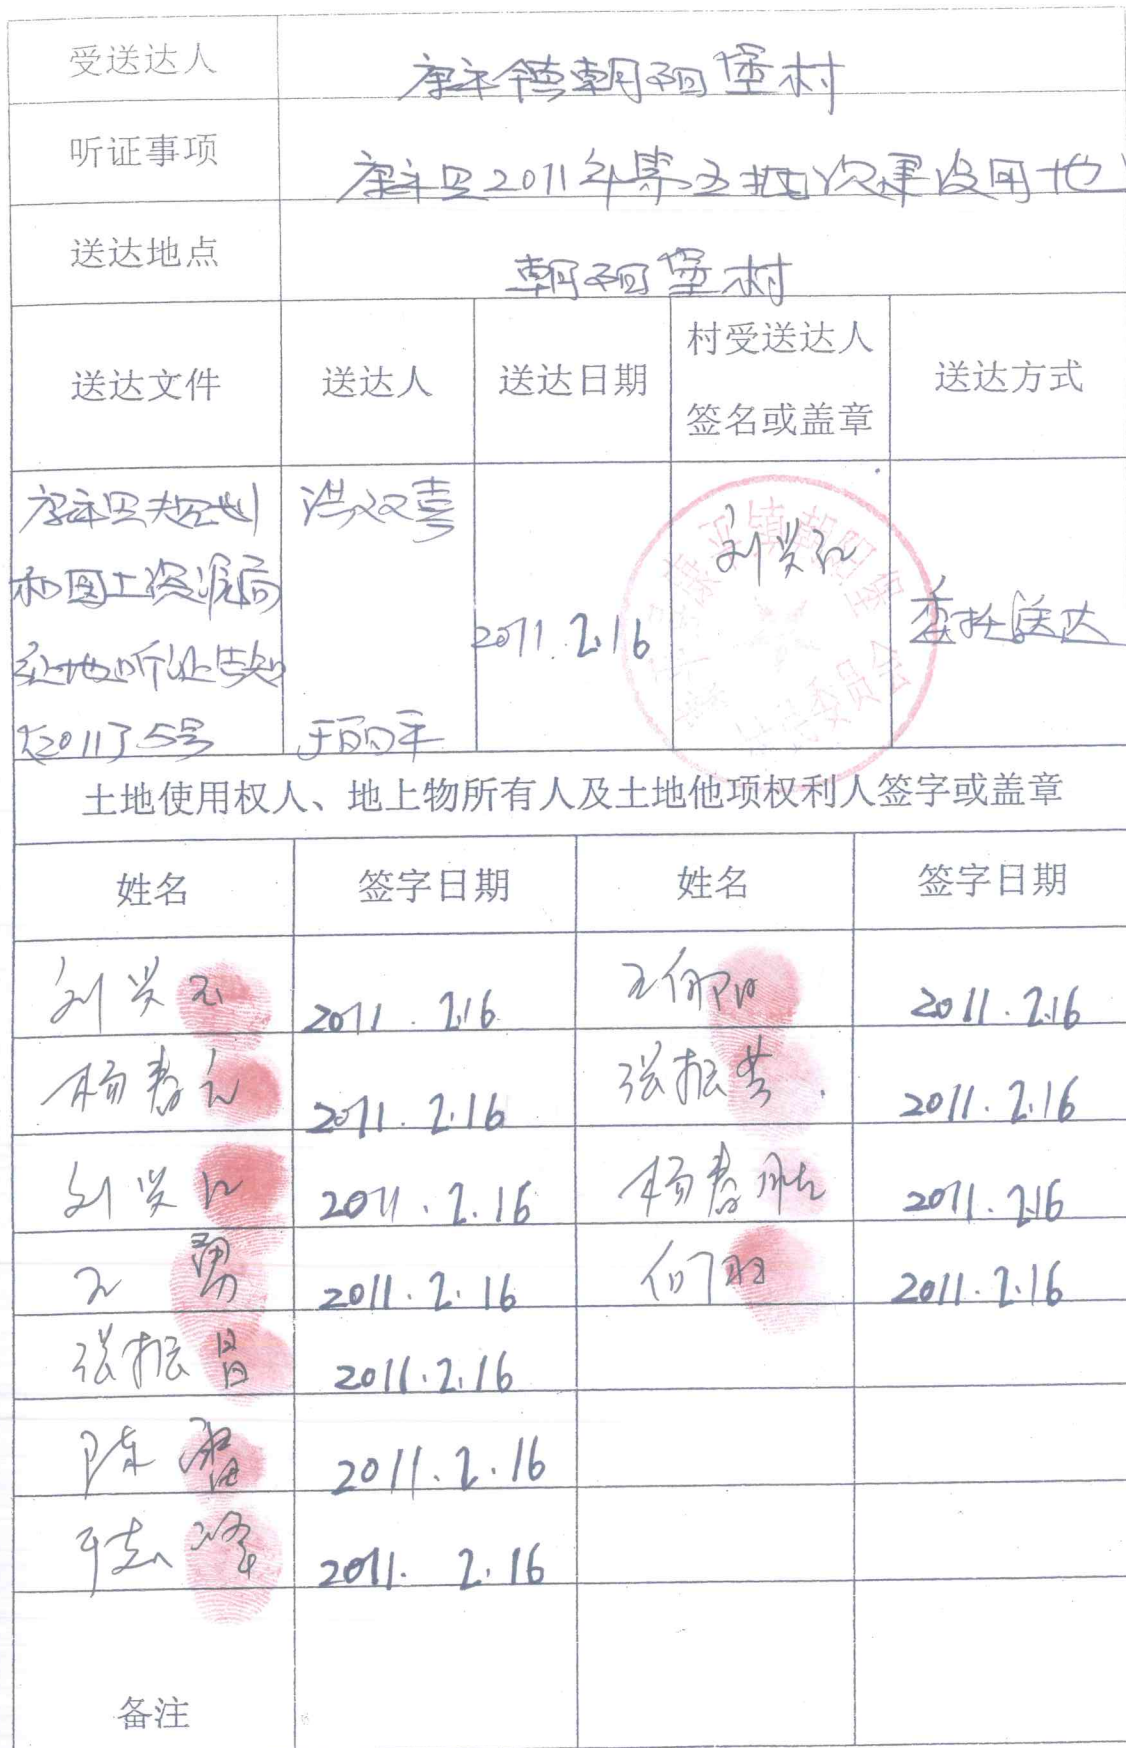 受送达人 康平镇朝阳堡村
听证事项 康平县2011年第五批次建设用地
送达地点 朝阳堡村
送达文件 送达人 送达日期 村受送达人签名或盖章 送达方式
康平县规划 洪双喜
和国土资源局 刘兴
征地听证告知 2011.2.16 委托送达
(2011)5号 于丽平
康平镇朝阳堡
委员会
土地使用权人、地上物所有人及土地他项权利人签字或盖章
姓名 签字日期 姓名 签字日期
刘兴 2011.2.16 王 阳 2011.2.16
杨春 2011.2.16 张振 2011.2.16
刘兴 2011.2.16 杨春胜 2011.2.16
王勇 2011.2.16 2011.2.16
张振昌 2011.2.16
陈 2011.2.16
于志峰 2011.2.16
备注